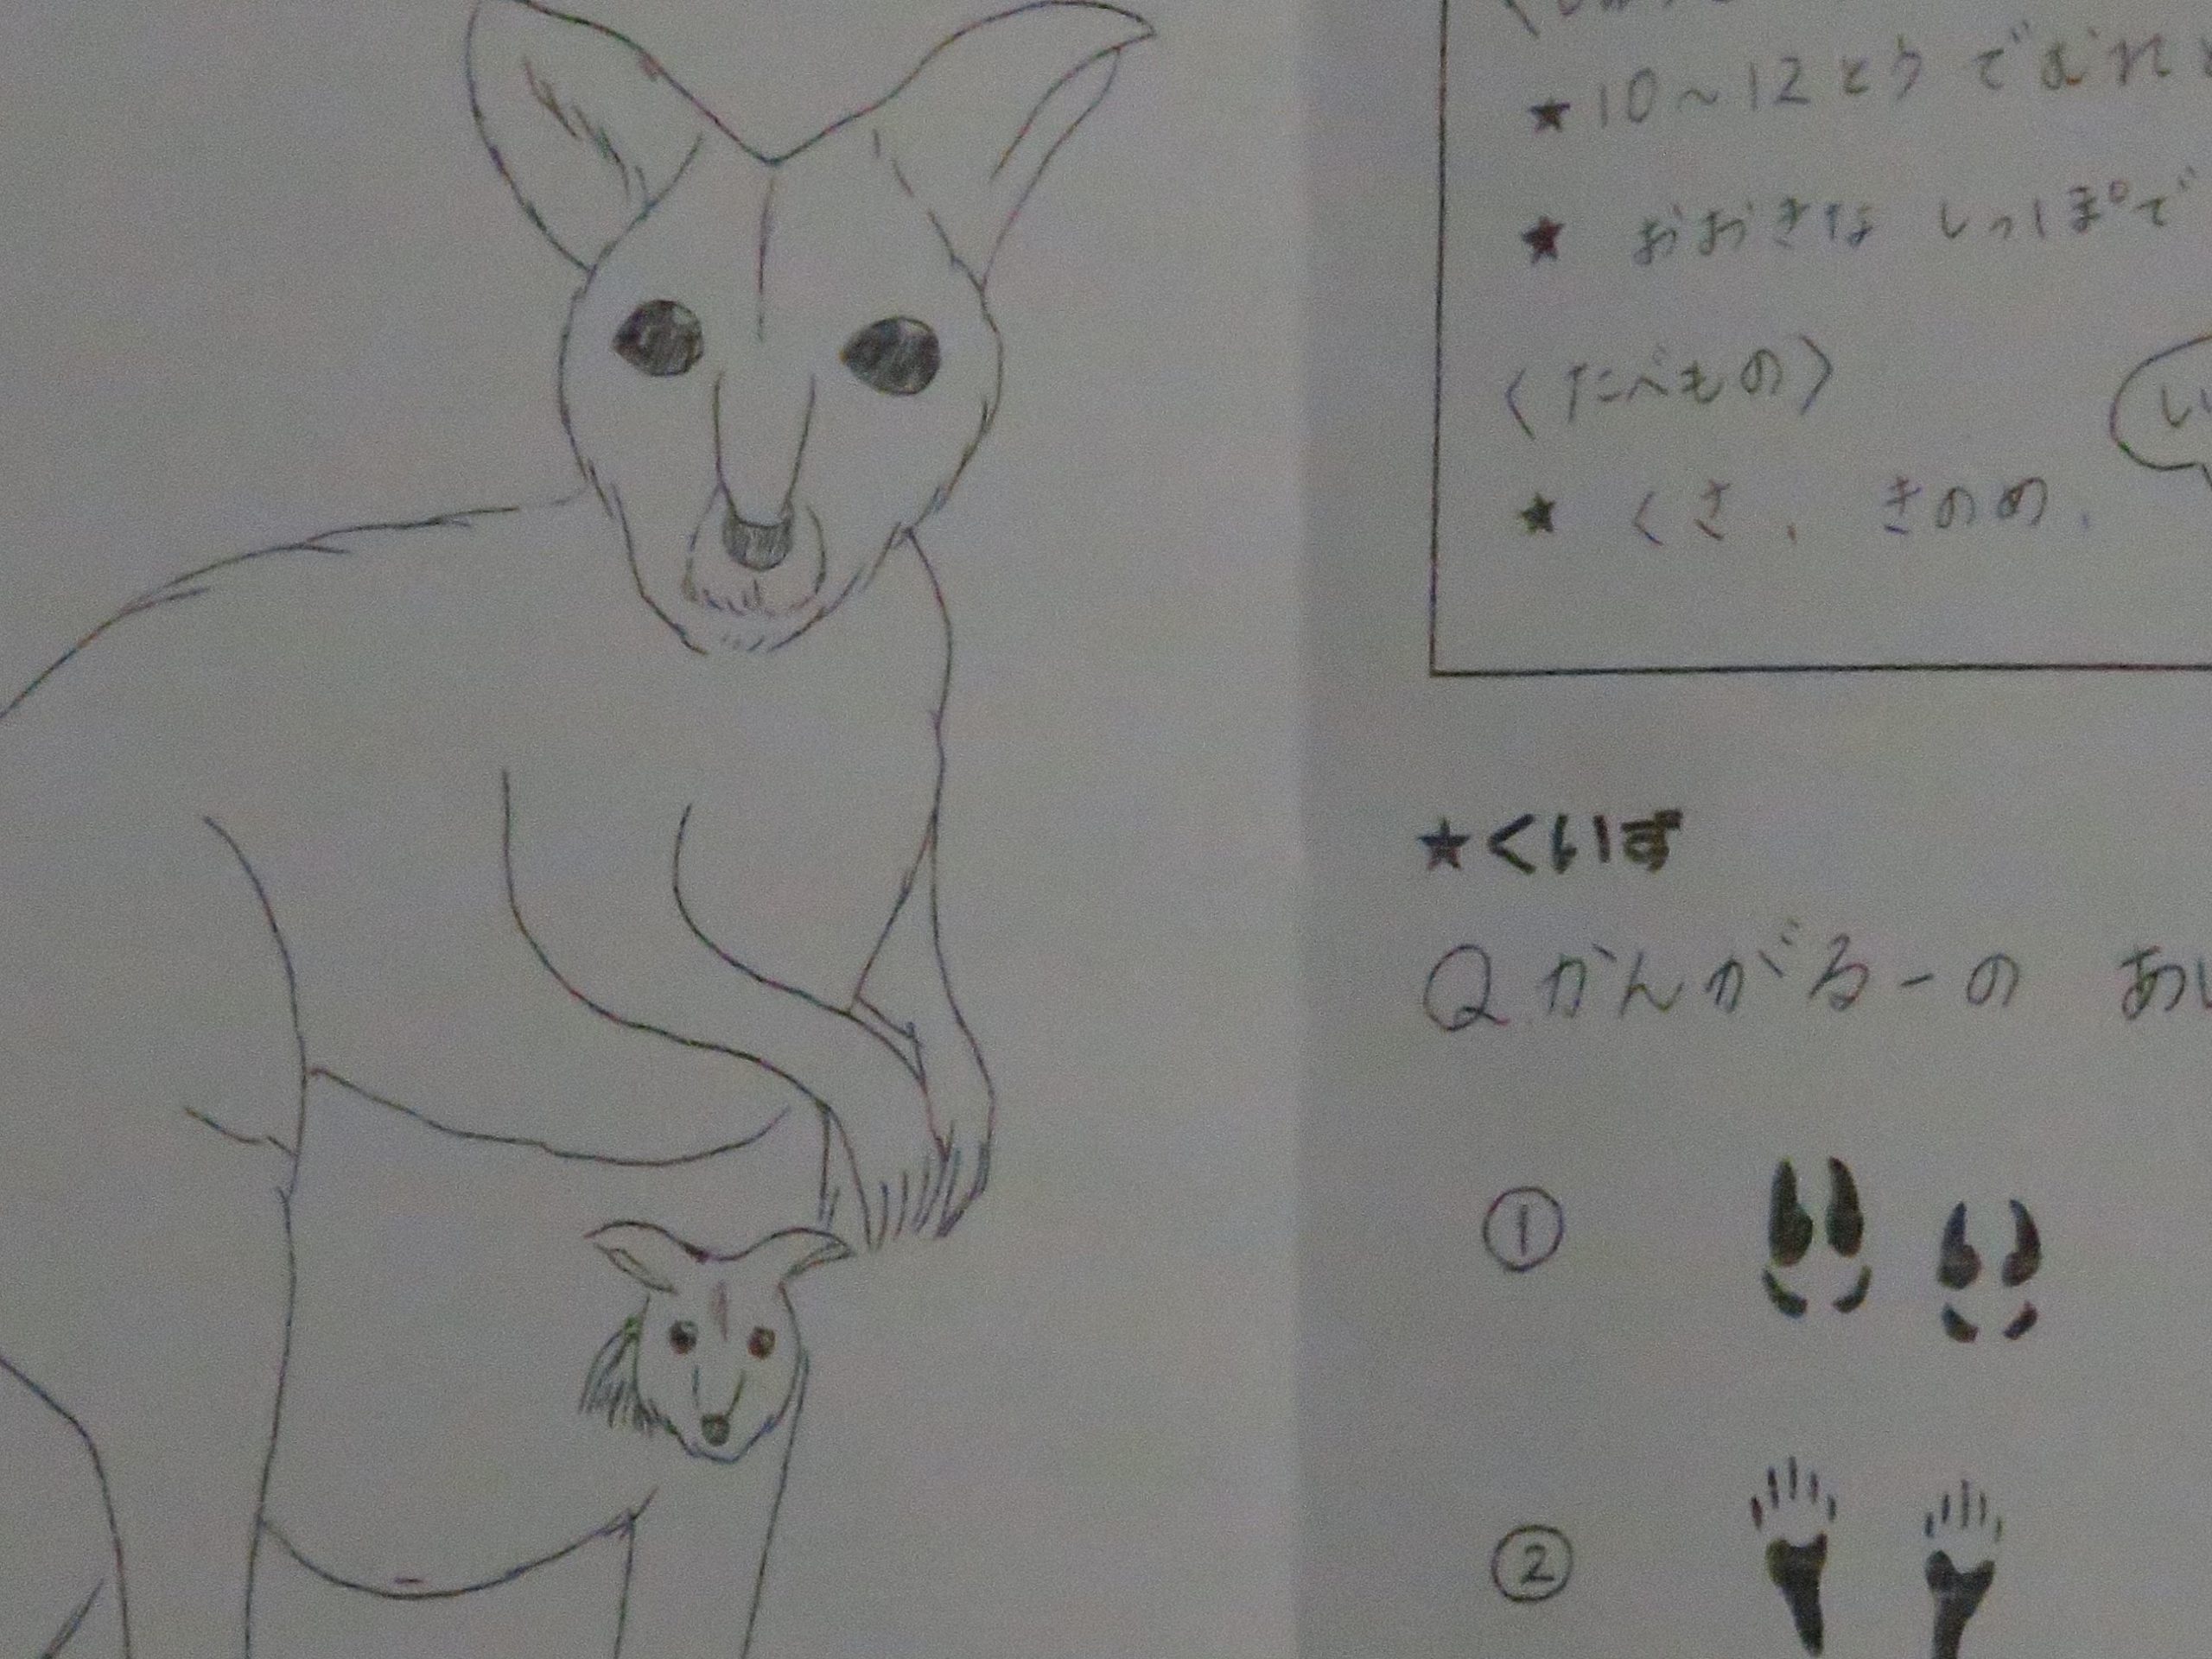 ★10～12とうでむれ
★ おおきな しっぽで
〈たべもの〉
★ くさ、 きのめ、
★くいず
Q かんがるーの あし
①
②